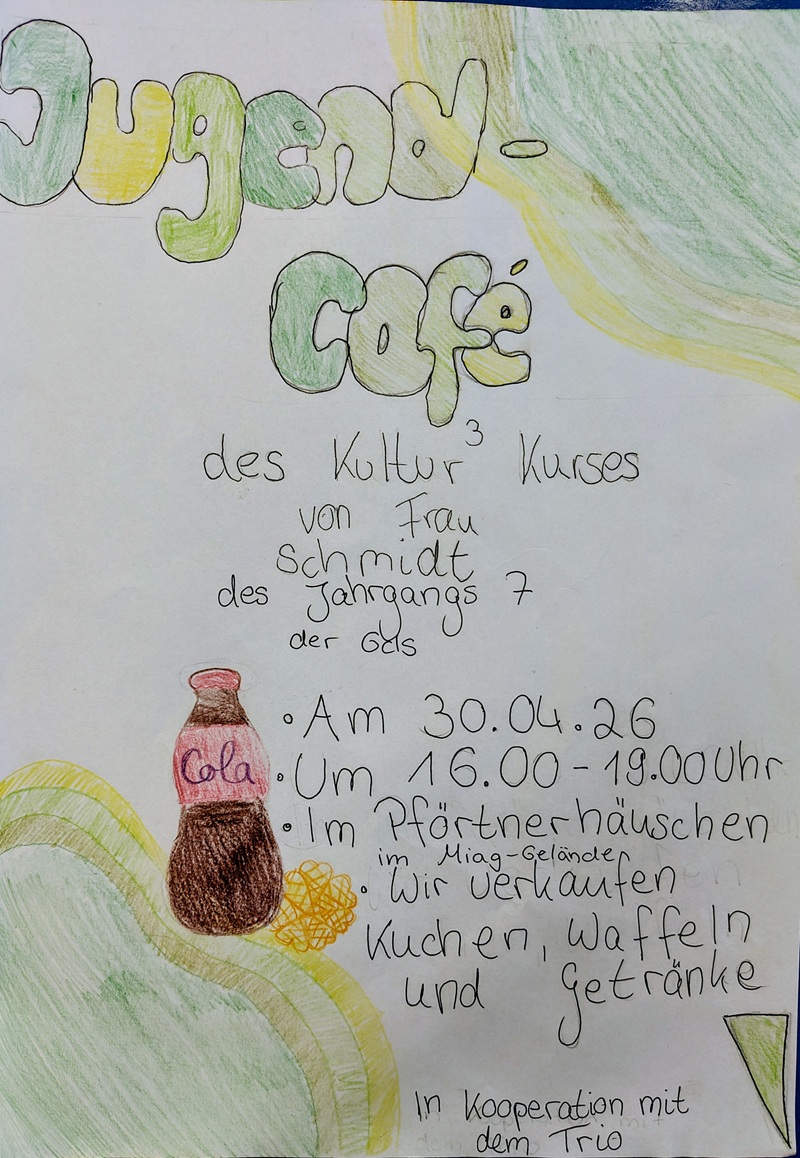 Jugend-
Café
des Kultur³ Kurses
von Frau
Schmidt
des Jahrgangs 7
der GdS
Cola
• Am 30.04.26
• Um 16.00-19.00 Uhr
• Im Pförtnerhäuschen
im Miag-Gelände
• Wir verkaufen
Kuchen, Waffeln
und Getränke
In Kooperation mit
dem Trio